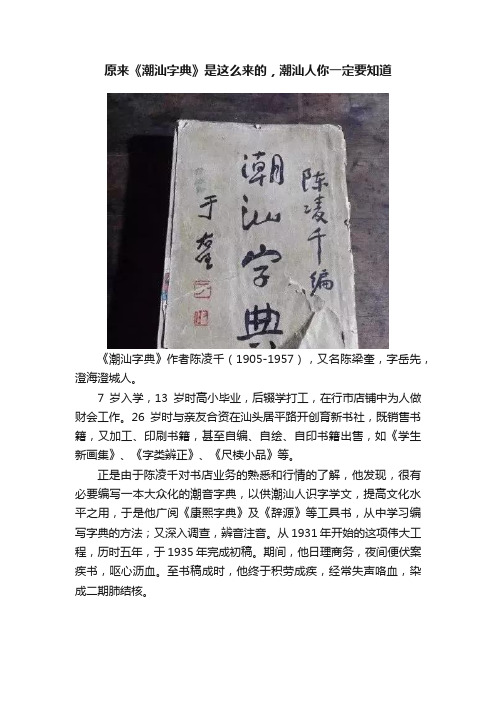 原来《潮汕字典》是这么来的，潮汕人你一定要知道
陈凌千编
潮汕字典
于右任
《潮汕字典》作者陈凌千（1905-1957），又名陈梁奎，字岳先，
澄海澄城人。
7 岁入学，13 岁时高小毕业，后辍学打工，在行市店铺中为人做
财会工作。26 岁时与亲友合资在汕头居平路开创育新书社，既销售书
籍，又加工、印刷书籍，甚至自编、自绘、自印书籍出售，如《学生
新画集》、《字类辨正》、《尺椟小品》等。
正是由于陈凌千对书店业务的熟悉和行情的了解，他发现，很有
必要编写一本大众化的潮音字典，以供潮汕人识字学文，提高文化水
平之用，于是他广阅《康熙字典》及《辞源》等工具书，从中学习编
写字典的方法；又深入调查，辨音注音。从1931年开始的这项伟大工
程，历时五年，于1935年完成初稿。期间，他日理商务，夜间便伏案
疾书，呕心沥血。至书稿成时，他终于积劳成疾，经常失声咯血，染
成二期肺结核。